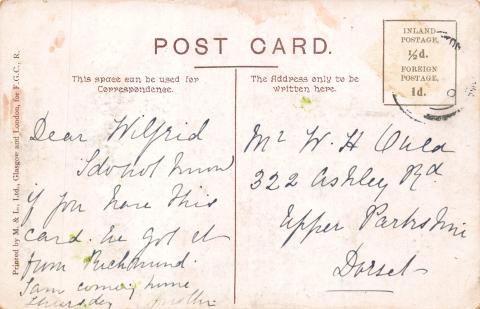 POST CARD.
This space can be used for
Correspondence.
The Address only to be
written here.
INLAND
POSTAGE,
½d.
FOREIGN
POSTAGE,
1d.
Printed by M. & L., Ltd., Glasgow and London, for F.G.C., R.
Dear Wilfrid
I do not know
if you have this
card. Ive got it
from Richmond.
I am coming home
Thursday
Mr W. H Ould
322 Ashley Rd.
Upper Parkstone
Dorset